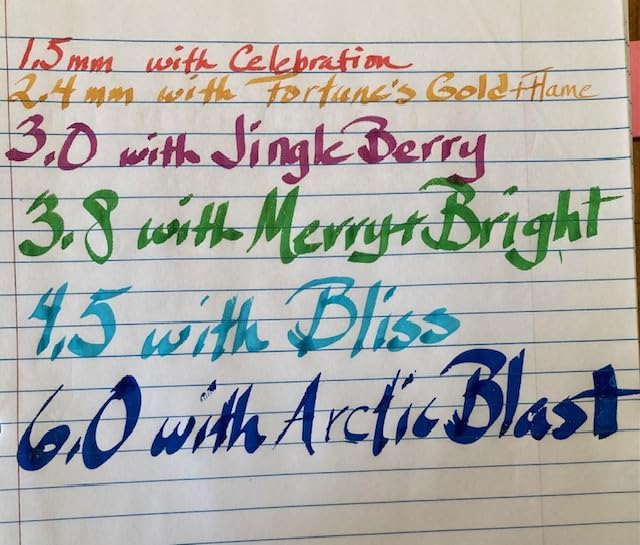 1.5mm with Celebration
2.4mm with Fortune's Gold + Flame
3.0 with Jingle Berry
3.8 with Merry + Bright
4.5 with Bliss
6.0 with Arctic Blast